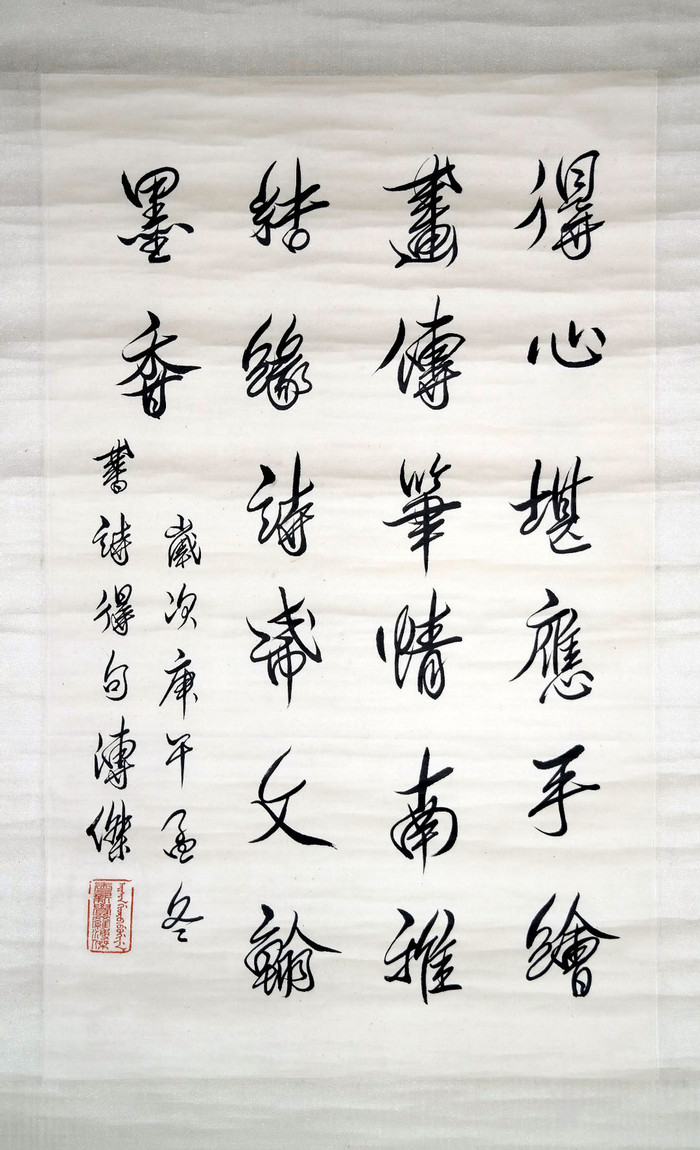 得心堪應手繪
畫傳筆情南雅
結緣詩文翰
墨香
歲次庚午孟冬
書詩得句溥傑
愛新覺羅溥傑